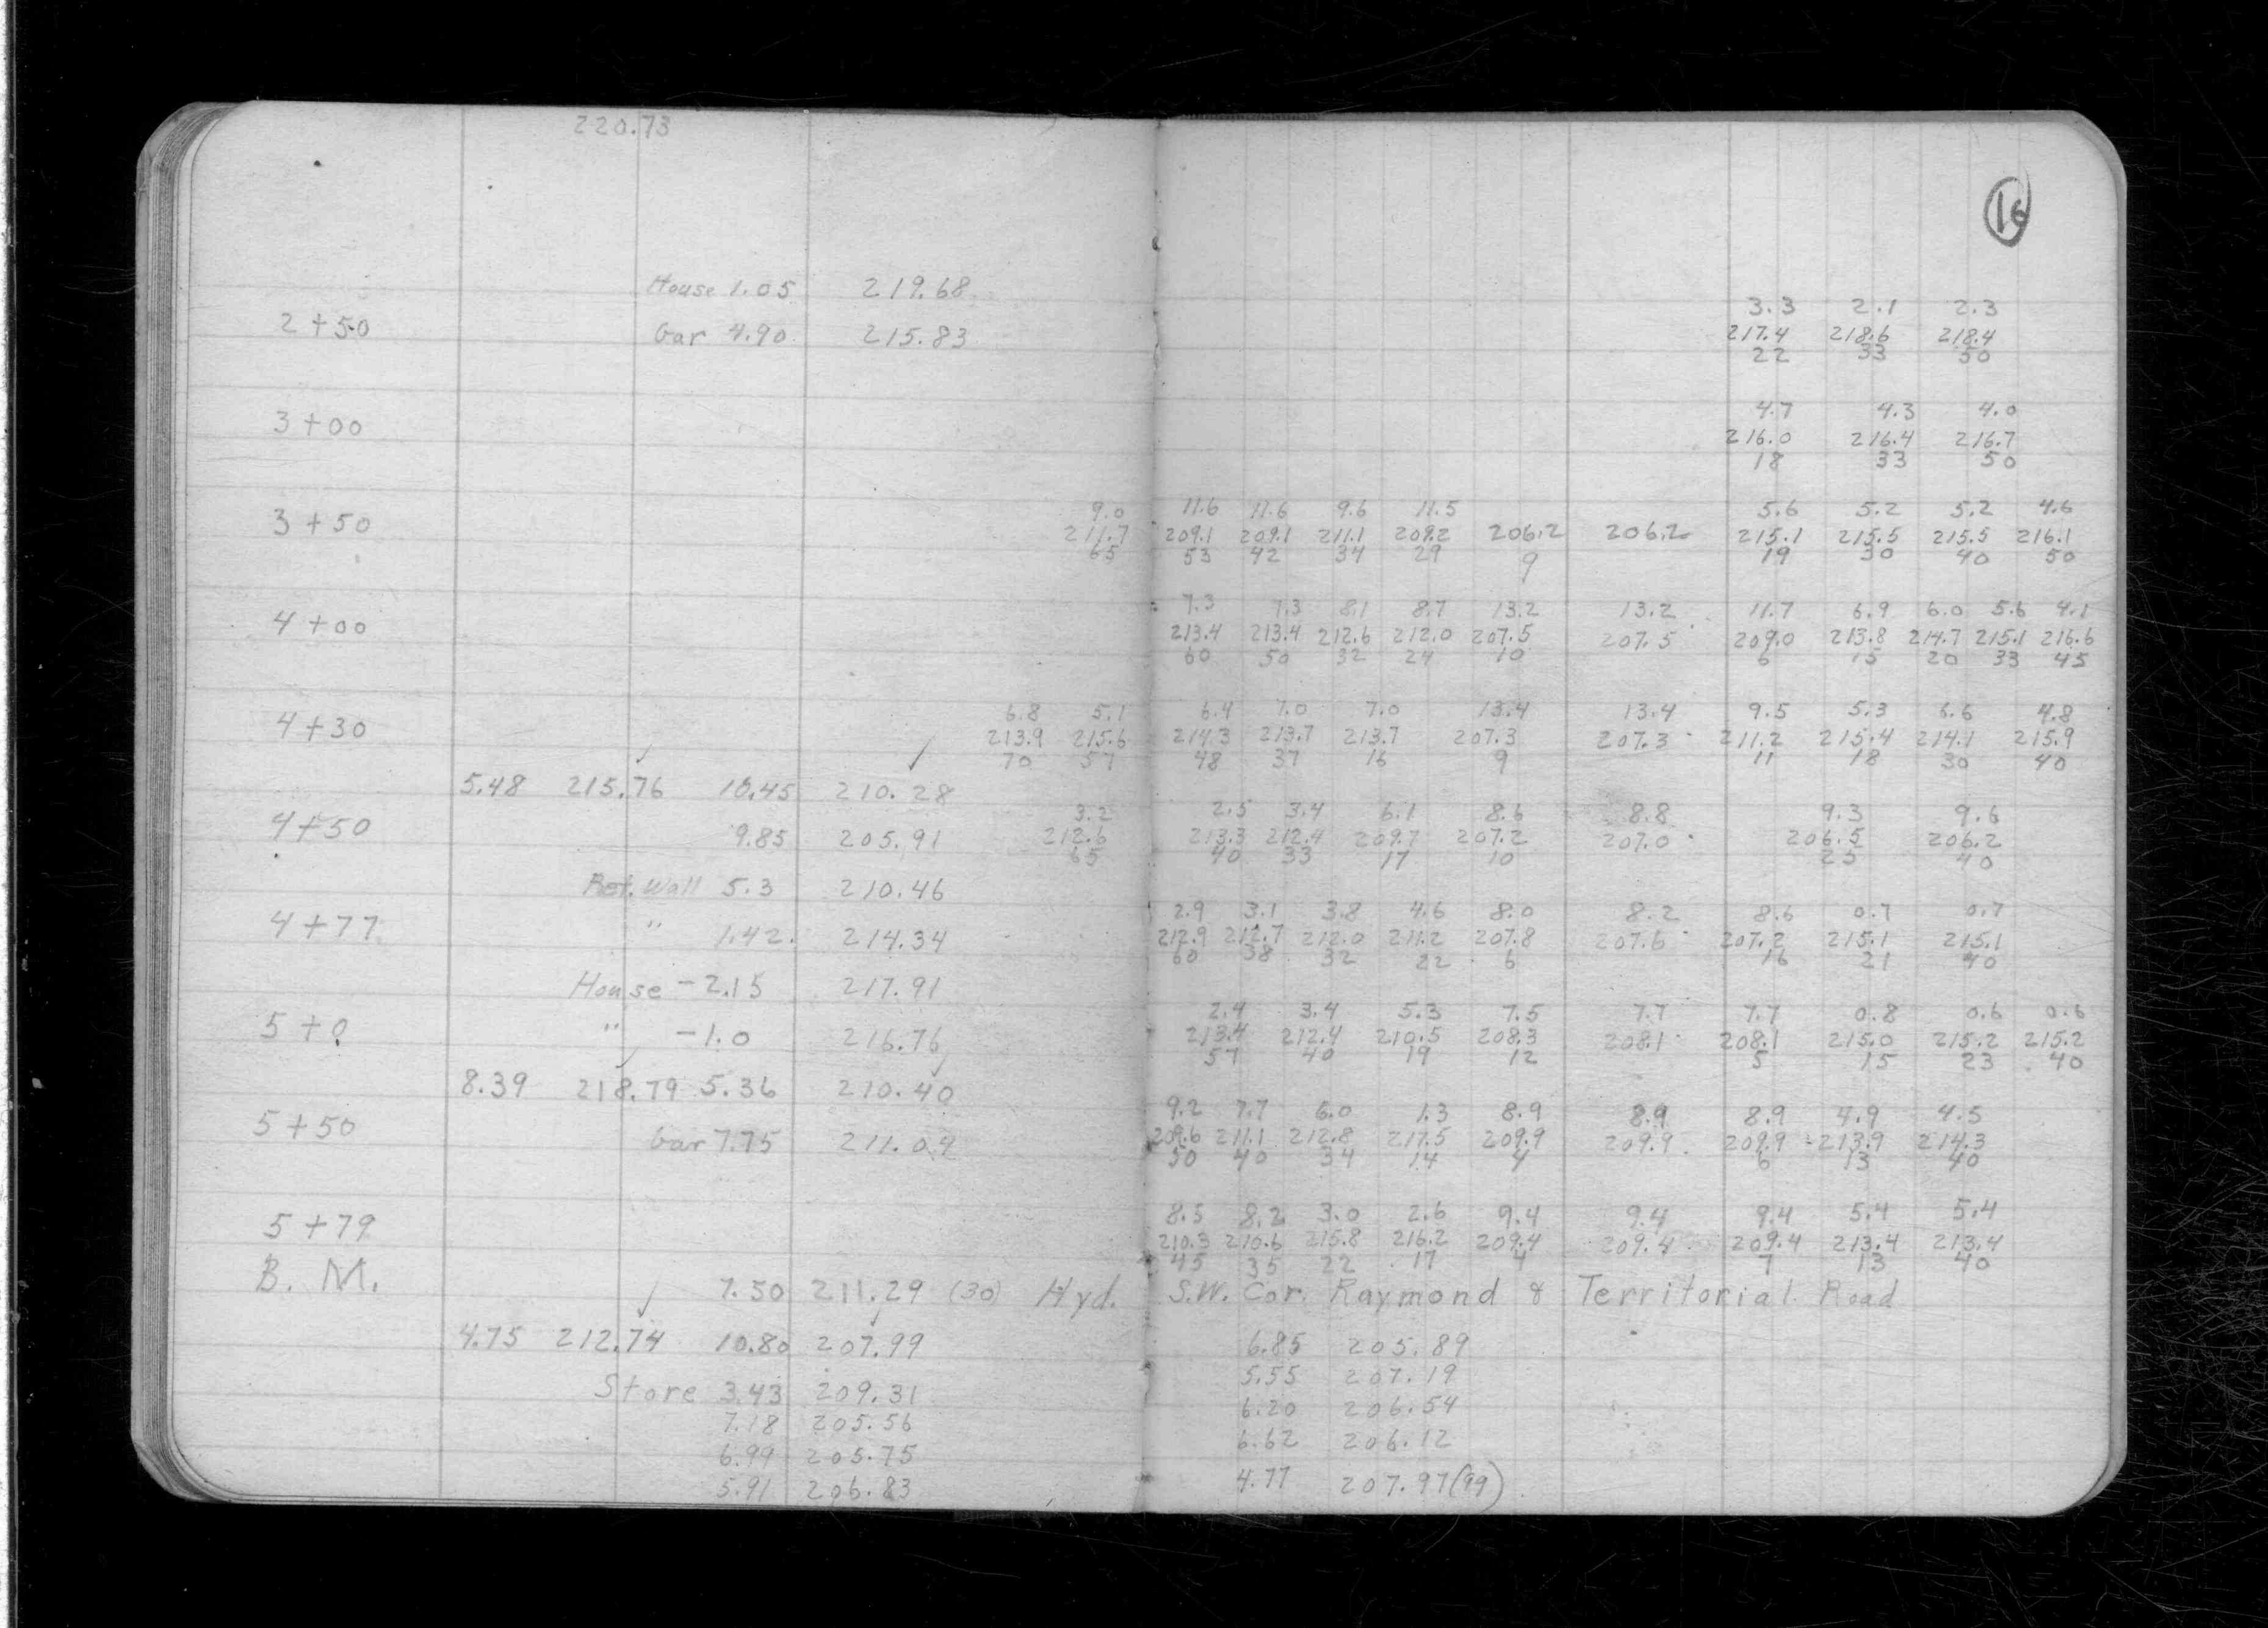 220.73
16
House 1.05 219.68
3.3 2.1 2.3
2+50 Gar 4.90 215.83 217.4 218.6 218.4
22 33 50
4.7 4.3 4.0
3+00 216.0 216.4 216.7
18 33 50
9.0 11.6 11.6 9.6 11.5 5.6 5.2 5.2 4.6
3+50 211.7 209.1 209.1 211.1 209.2 206.2 206.2 215.1 215.5 215.5 216.1
65 53 42 34 29 9 19 30 40 50
7.3 7.3 8.1 8.7 13.2 13.2 11.7 6.9 6.0 5.6 4.1
4+00 213.4 213.4 212.6 212.0 207.5 207.5 209.0 213.8 214.7 215.1 216.6
60 50 32 24 10 6 15 20 33 45
6.8 5.1 6.4 7.0 7.0 13.4 13.4 9.5 5.3 6.6 4.8
4+30 213.9 215.6 214.3 213.7 213.7 207.3 207.3 211.2 215.4 214.1 215.9
70 57 48 37 16 9 11 18 30 40
5.48 215.76 10.45 210.28
3.2 2.5 3.4 6.1 8.6 8.8 9.3 9.6
4+50 9.85 205.91 212.6 213.3 212.4 209.7 207.2 207.0 206.5 206.2
65 40 33 17 10 25 40
Ret. Wall 5.3 210.46
2.9 3.1 3.8 4.6 8.0 8.2 8.6 0.7 0.7
4+77 " 1.42 214.34 212.9 212.7 212.0 211.2 207.8 207.6 207.2 215.1 215.1
60 38 32 22 6 16 21 40
House -2.15 217.91
2.4 3.4 5.3 7.5 7.7 7.7 0.8 0.6 0.6
5+0 " -1.0 216.76 213.4 212.4 210.5 208.3 208.1 208.1 215.0 215.2 215.2
57 40 19 12 5 15 23 40
8.39 218.79 5.36 210.40
9.2 7.7 6.0 1.3 8.9 8.9 8.9 4.9 4.5
5+50 Gar 7.75 211.04 209.6 211.1 212.8 217.5 209.9 209.9 209.9 213.9 214.3
50 40 34 14 4 6 13 40
8.5 8.2 3.0 2.6 9.4 9.4 9.4 5.4 5.4
5+79 210.3 210.6 215.8 216.2 209.4 209.4 209.4 213.4 213.4
45 35 22 17 4 7 13 40
B. M. 7.50 211.29 (30) Hyd. S.W. Cor. Raymond & Territorial Road
4.75 212.74 10.80 207.99 6.85 205.89
Store 3.43 209.31 5.55 207.19
7.18 205.56 6.20 206.54
6.99 205.75 6.62 206.12
5.91 206.83 4.77 207.97(99)